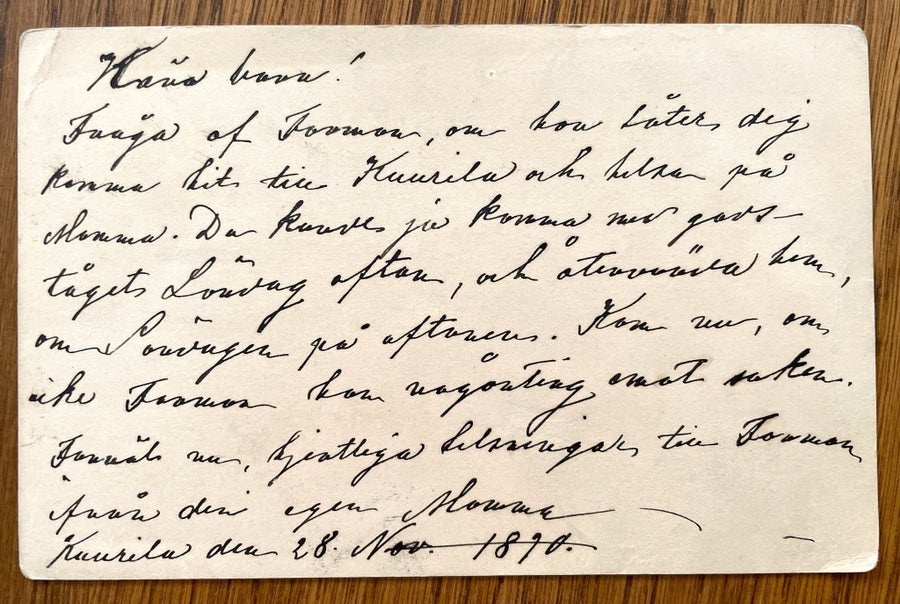 Kära barn!
Fråga af Farmor, om hon låter dig
komma hit till Kuurila och helsa på
Momma. Du kunde ju komma med gods-
tåget Lördag afton, och återvända hem,
om Söndagen på aftonen. Kom nu, om
icke Farmor har någonting emot saken.
Farväl nu, hjertliga helsningar till Farmor
ifrån din egen Momma
Kuurila den 28. Nov. 1890.